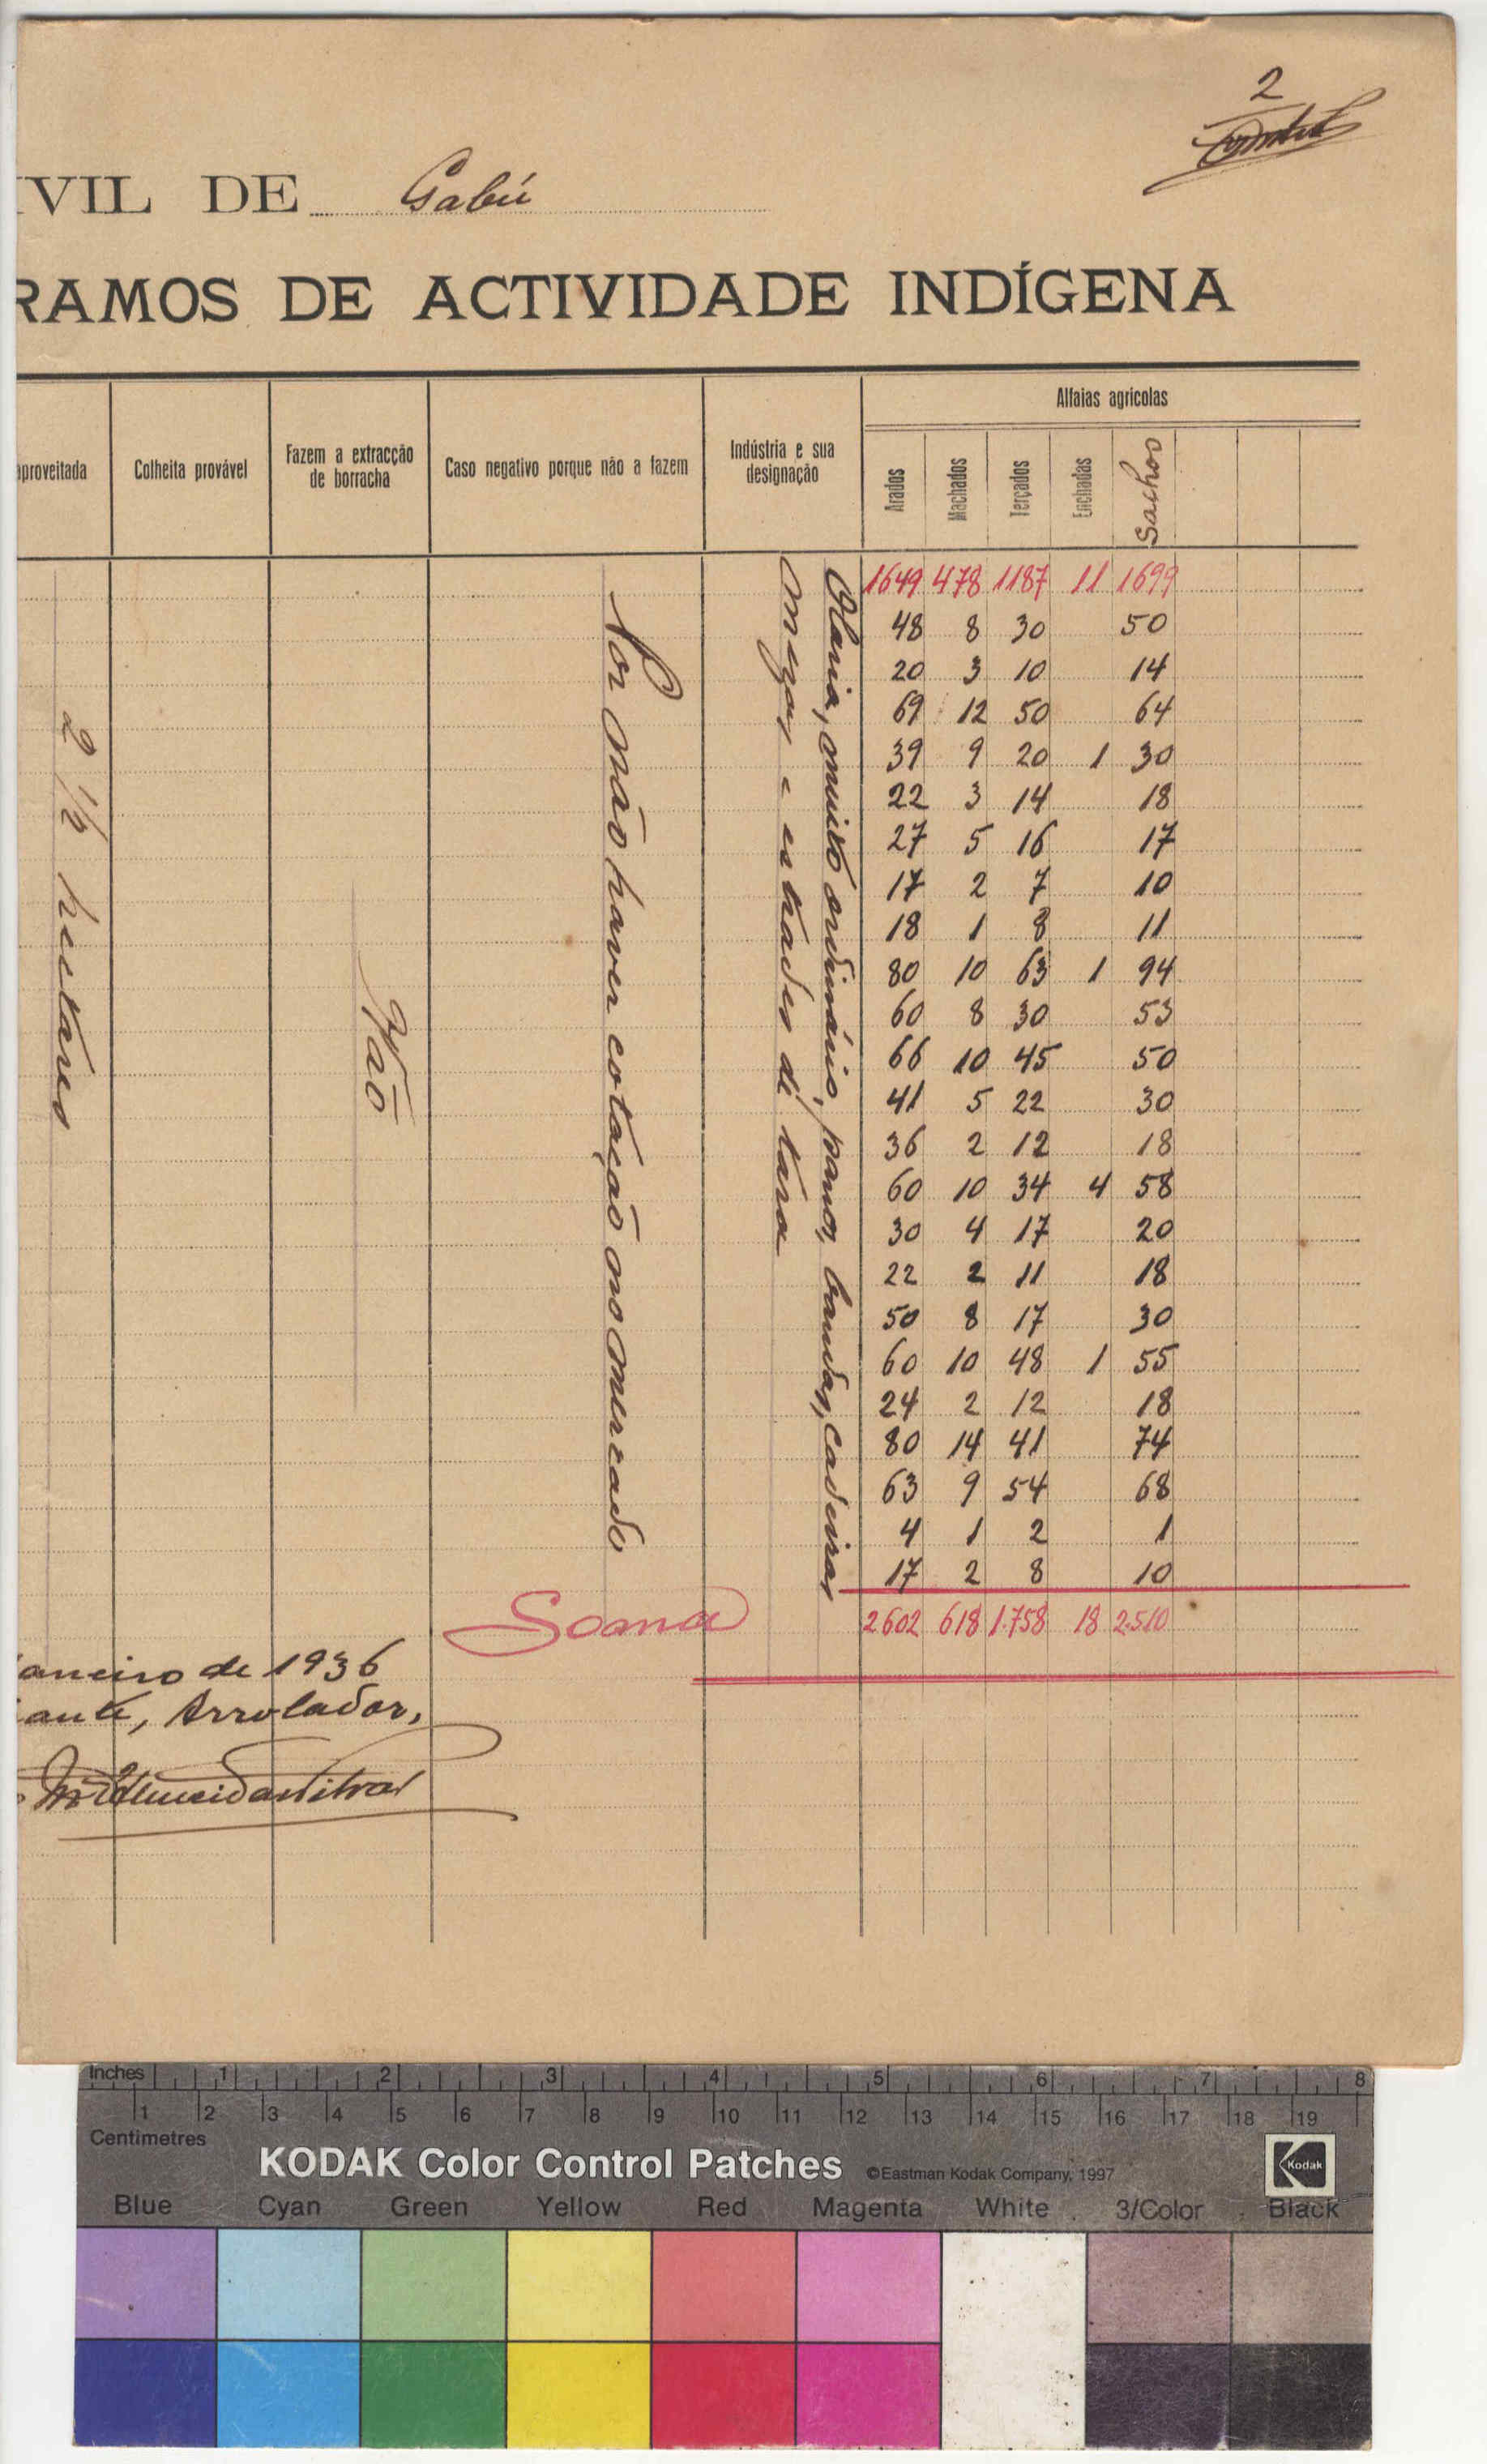 2
IVIL DE Gabú
RAMOS DE ACTIVIDADE INDÍGENA
aproveitada
Colheita provável
Fazem a extracção
de borracha
Caso negativo porque não a fazem
Indústria e sua
designação
Alfaias agrícolas
Arados Machados Terçados Enchadas Sachos
2 1/2 hectares
Não
Por não haver cotação no mercado
Olaria, muito ordinário, panos, bandas, cadeiras
mezas e estrados di tara
1649 478 1187 11 1699
48 8 30 50
20 3 10 14
69 12 50 64
39 9 20 1 30
22 3 14 18
27 5 16 17
17 2 7 10
18 1 8 11
80 10 63 1 94
60 8 30 53
66 10 45 50
41 5 22 30
36 2 12 18
60 10 34 4 58
30 4 17 20
22 2 11 18
50 8 17 30
60 10 48 1 55
24 2 12 18
80 14 41 74
63 9 54 68
4 1 2 1
17 2 8 10
Soma 2602 618 1.758 18 2.510
aneiro de 1936
ante, Arrolador,
Inches 1 2 3 4 5 6 7 8
1 2 3 4 5 6 7 8 9 10 11 12 13 14 15 16 17 18 19
Centimetres
KODAK Color Control Patches ©Eastman Kodak Company, 1997 Kodak
Blue Cyan Green Yellow Red Magenta White 3/Color Black